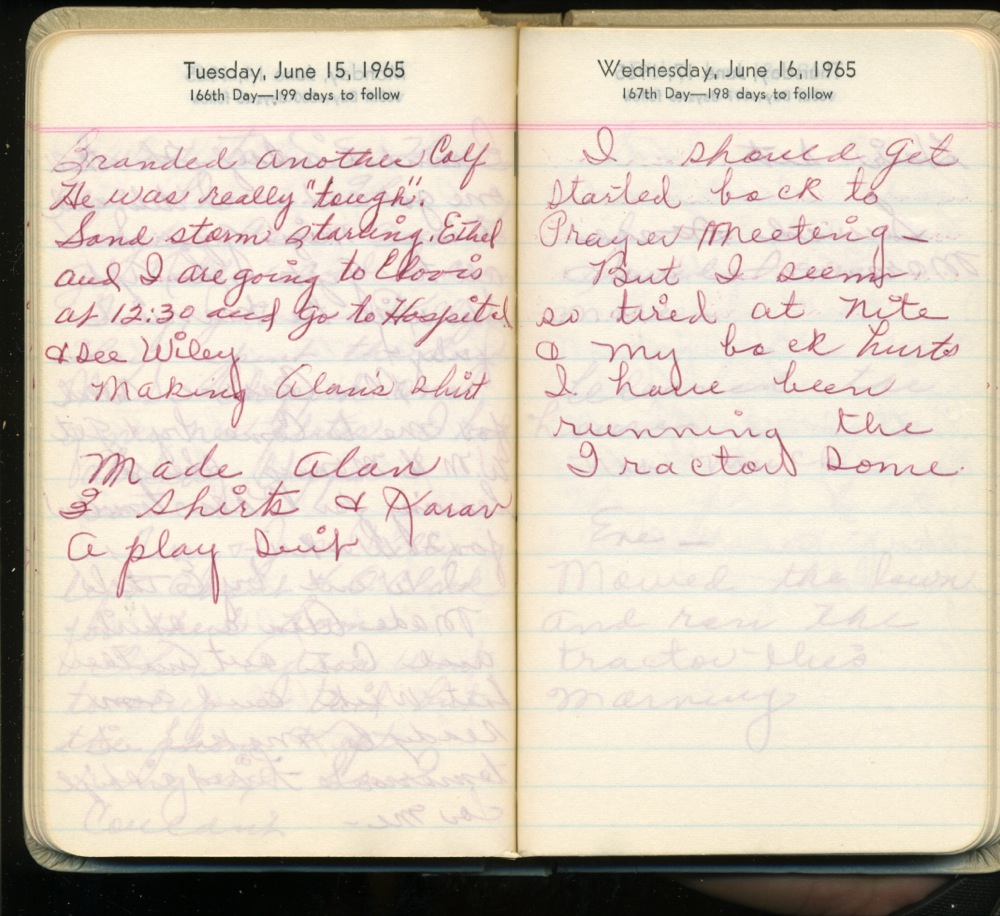 Tuesday, June 15, 1965
166th Day—199 days to follow
Branded another Calf
He was really "tough".
Sand storm starting. Ethel
and I are going to Clovis
at 12:30 and go to Hospital
& see Wiley
Making Alan's shirt
Made Alan
3 shirts & Karan
a play suit
Wednesday, June 16, 1965
167th Day—198 days to follow
I should get
started back to
Prayer Meeting—
But I seem
so tired at nite
& my back hurts
I have been
running the
Tractor some.
Eve —
Mowed the lawn
and ran the
tractor this
morning